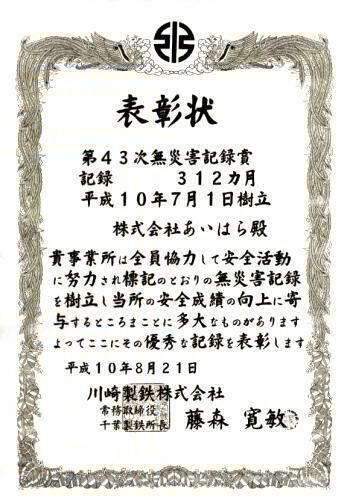 表彰状
第43次無災害記録賞
記録　312カ月
平成10年7月1日樹立
株式会社あいはら殿
貴事業所は全員協力して安全活動
に努力され標記のとおりの無災害記録
を樹立し当所の安全成績の向上に寄
与するところまことに多大なものがあります
よってここにその優秀な記録を表彰します
平成10年8月21日
川崎製鉄株式会社
常務取締役
千葉製鉄所長 藤森 寛敏